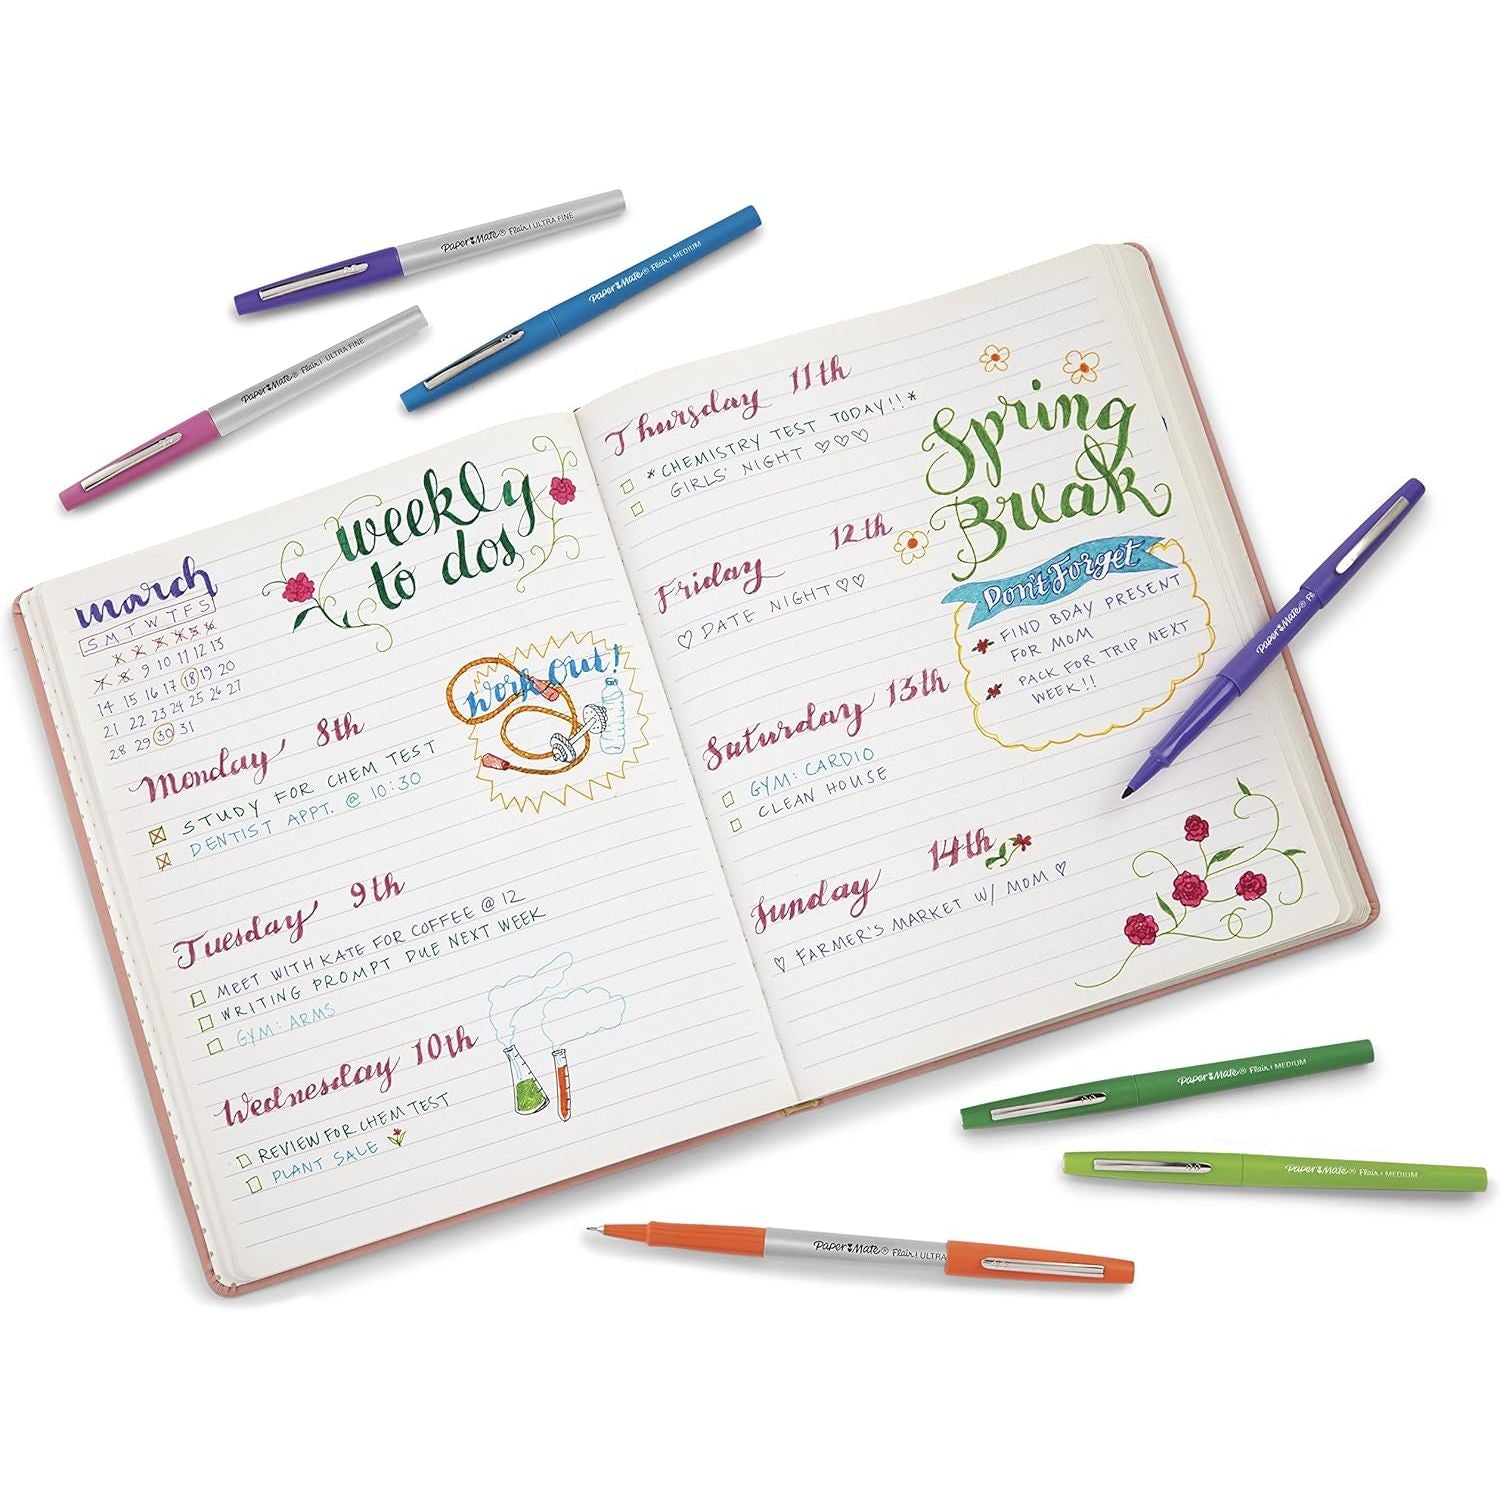 PaperMate® Flair | ULTRA FINE
PaperMate® Flair | MEDIUM
PaperMate® Flair | ULTRA FINE
weekly
to dos
march
S M T W T F S
9 10 11 12 13
14 15 16 17 18 19 20
21 22 23 24 25 26 27
28 29 30 31
Work Out!
Monday 8th
STUDY FOR CHEM TEST
DENTIST APPT. @ 10:30
Tuesday 9th
MEET WITH KATE FOR COFFEE @ 12
WRITING PROMPT DUE NEXT WEEK
GYM: ARMS
Wednesday 10th
REVIEW FOR CHEM TEST
PLANT SALE
Thursday 11th
*CHEMISTRY TEST TODAY!!*
GIRLS' NIGHT ♡♡♡
Friday 12th
♡ DATE NIGHT ♡♡
Saturday 13th
GYM: CARDIO
CLEAN HOUSE
Sunday 14th
♡ FARMER'S MARKET W/ MOM ♡
Spring
Break
Don't Forget
FIND BDAY PRESENT
FOR MOM
PACK FOR TRIP NEXT
WEEK!!
PaperMate® Fl
PaperMate® Flair | MEDIUM
PaperMate® Flair | MEDIUM
PaperMate® Flair | ULTRA